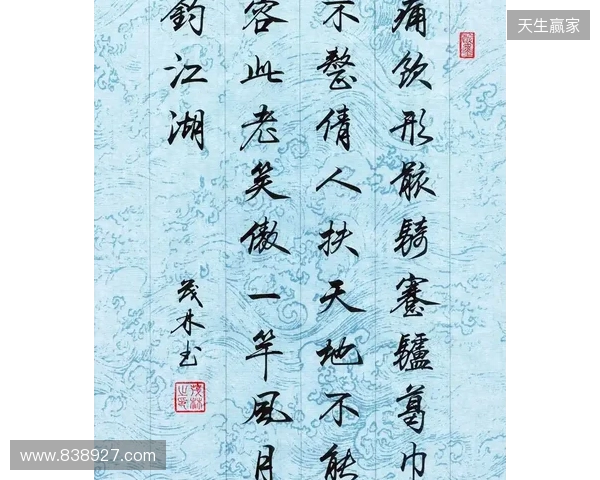 痛饮形骸騎蹇驢葛巾
不整倩人扶天地不能
容此老笑傲一竿風月
釣江湖
茂林书
天生赢家
www.838927.com